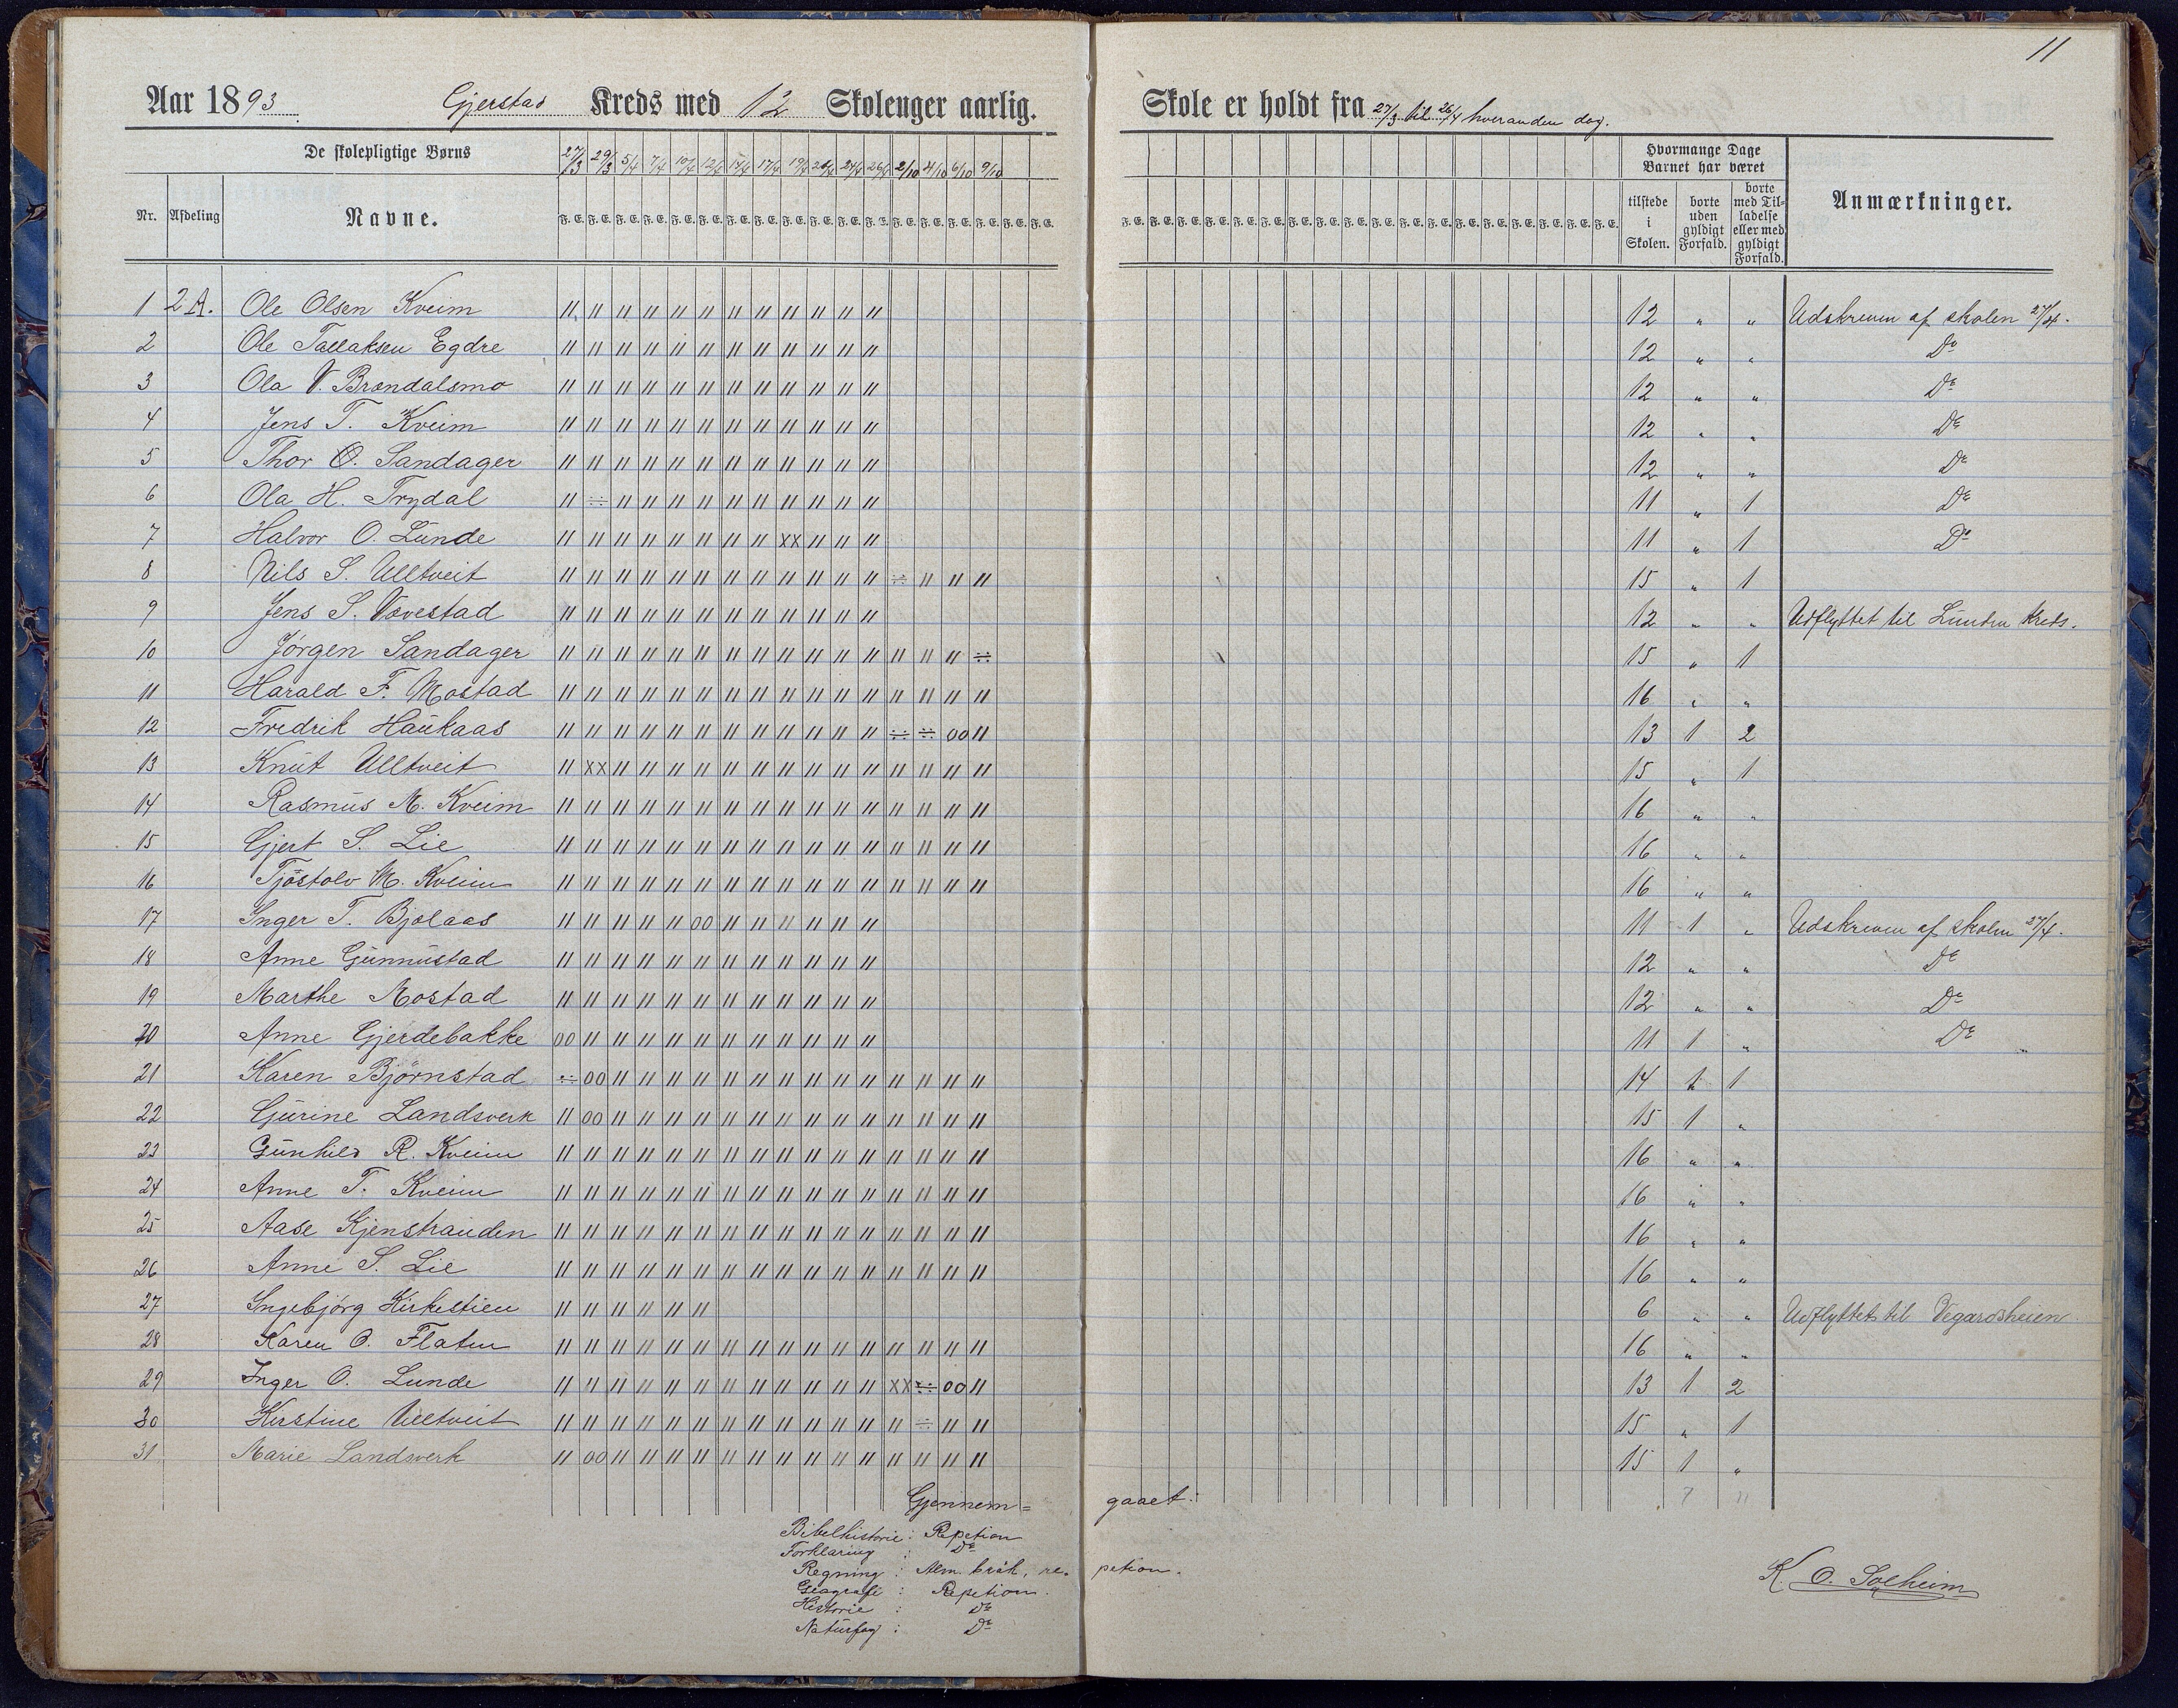 11
Aar 1893 Gjerstad Kreds med 12 Skolenger aarlig. Skole er holdt fra 27/3 til 26/4 hveranden dag.
De skolepligtige Børns 27/3 29/3 5/4 7/4 10/4 12/4 14/4 17/4 19/4 24/4 26/4 2/10 4/10 6/10 9/10 Hvormange Dage Barnet har været
Nr. Afdeling Navne. F. E. tilstede i Skolen. borte uden gyldigt Forfald. borte med Tilladelse eller med gyldigt Forfald. Anmærkninger.
1 2A. Ole Olsen Kveim 〃 〃 〃 〃 〃 〃 〃 〃 〃 〃 〃 〃 12 " " Udskreven af skolen 27/4.
2 Ole Tallaksen Egdre 〃 〃 〃 〃 〃 〃 〃 〃 〃 〃 〃 〃 12 " " Do
3 Ola V. Brændalsmo 〃 〃 〃 〃 〃 〃 〃 〃 〃 〃 〃 〃 12 " " Do
4 Jens T. Kveim 〃 〃 〃 〃 〃 〃 〃 〃 〃 〃 〃 〃 12 " " Do
5 Thor O. Sandager 〃 〃 〃 〃 〃 〃 〃 〃 〃 〃 〃 〃 12 " " Do
6 Ola H. Trydal 〃 ÷ 〃 〃 〃 〃 〃 〃 〃 〃 〃 〃 11 " 1 Do
7 Halvor O. Lunde 〃 〃 〃 〃 〃 〃 〃 〃 xx 〃 〃 〃 11 " 1 Do
8 Nils S. Ulltveit 〃 〃 〃 〃 〃 〃 〃 〃 〃 〃 〃 〃 ÷ 〃 〃 〃 15 " 1
9 Jens S. Vævestad 〃 〃 〃 〃 〃 〃 〃 〃 〃 〃 〃 〃 12 " " Udflyttet til Lunden Kreds.
10 Jørgen Sandager 〃 〃 〃 〃 〃 〃 〃 〃 〃 〃 〃 〃 〃 〃 〃 ÷ 15 " 1
11 Harald F. Mostad 〃 〃 〃 〃 〃 〃 〃 〃 〃 〃 〃 〃 〃 〃 〃 〃 16 " "
12 Fredrik Haukaas 〃 〃 〃 〃 〃 〃 〃 〃 〃 〃 〃 〃 ÷ ÷ 00 〃 13 1 2
13 Knut Ulltveit 〃 xx 〃 〃 〃 〃 〃 〃 〃 〃 〃 〃 〃 〃 〃 〃 15 " 1
14 Rasmus M. Kveim 〃 〃 〃 〃 〃 〃 〃 〃 〃 〃 〃 〃 〃 〃 〃 〃 16 " "
15 Gjert S. Lie 〃 〃 〃 〃 〃 〃 〃 〃 〃 〃 〃 〃 〃 〃 〃 〃 16 " "
16 Tjøstolv M. Kveim 〃 〃 〃 〃 〃 〃 〃 〃 〃 〃 〃 〃 〃 〃 〃 〃 16 " "
17 Inger T. Bjolaas 〃 〃 〃 〃 〃 00 〃 〃 〃 〃 〃 〃 11 1 " Udskreven af skolen 27/4.
18 Anne Gunnustad 〃 〃 〃 〃 〃 〃 〃 〃 〃 〃 〃 〃 12 " " Do
19 Marthe Mostad 〃 〃 〃 〃 〃 〃 〃 〃 〃 〃 〃 〃 12 " " Do
20 Anne Gjerdebakke 00 〃 〃 〃 〃 〃 〃 〃 〃 〃 〃 〃 11 1 " Do
21 Karen Bjørnstad ÷ 00 〃 〃 〃 〃 〃 〃 〃 〃 〃 〃 〃 〃 〃 〃 14 1 1
22 Gurine Landsverk 〃 00 〃 〃 〃 〃 〃 〃 〃 〃 〃 〃 〃 〃 〃 〃 15 1 "
23 Gunhild R. Kveim 〃 〃 〃 〃 〃 〃 〃 〃 〃 〃 〃 〃 〃 〃 〃 〃 16 " "
24 Anne T. Kveim 〃 〃 〃 〃 〃 〃 〃 〃 〃 〃 〃 〃 〃 〃 〃 〃 16 " "
25 Aase Kjenstrauden 〃 〃 〃 〃 〃 〃 〃 〃 〃 〃 〃 〃 〃 〃 〃 〃 16 " "
26 Anne S. Lie 〃 〃 〃 〃 〃 〃 〃 〃 〃 〃 〃 〃 〃 〃 〃 〃 16 " "
27 Ingebjørg Kirkestien 〃 〃 〃 〃 〃 〃 6 " " Udflyttet til Vegardsheien
28 Karen O. Flaten 〃 〃 〃 〃 〃 〃 〃 〃 〃 〃 〃 〃 〃 〃 〃 〃 16 " "
29 Inger O. Lunde 〃 〃 〃 〃 〃 〃 〃 〃 〃 〃 〃 〃 xx ÷ 00 〃 13 1 2
30 Kirstine Ulltveit 〃 〃 〃 〃 〃 〃 〃 〃 〃 〃 〃 〃 〃 ÷ 〃 〃 15 " 1
31 Marie Landsverk 〃 00 〃 〃 〃 〃 〃 〃 〃 〃 〃 〃 〃 〃 〃 〃 15 1 "
Gjennem=gaaet: 7 11
Bibelhistorie: Repetion
Forklaring : Do
Regning : Alm. brøk, repetion.
Geografi : Repetion.
Historie : Do
Naturfag : Do
K. O. Solheim